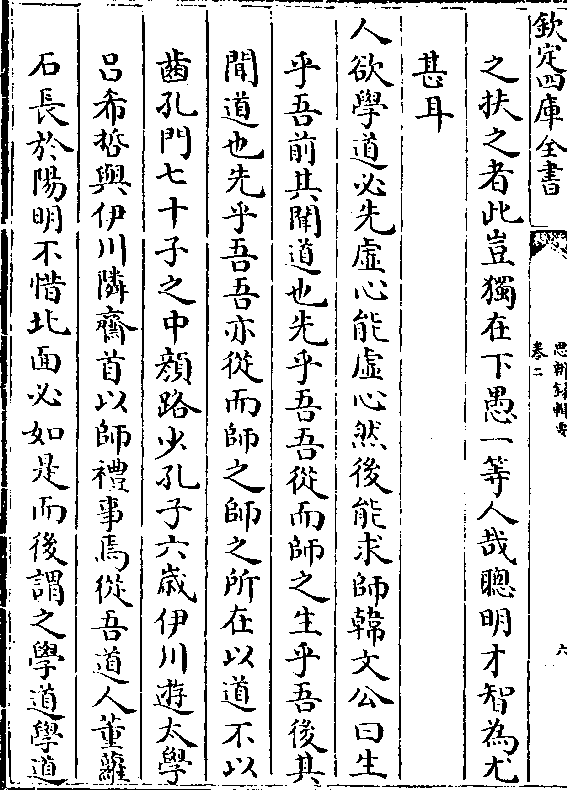 欽定四庫全書
思辨録輯要
卷二
六
之扶之者此豈獨在下愚一等人哉聰明才智為尤
甚耳
人欲學道必先虛心能虛心然後能求師韓文公曰生
乎吾前其聞道也先乎吾吾從而師之生乎吾後其
聞道也先乎吾吾亦從而師之師之所在以道不以
齒孔門七十子之中顔路少孔子六歲伊川遊太學
吕希哲與伊川隣齋首以師禮事焉從吾道人董蘿
石長於陽明不惜北面必如是而後謂之學道學道